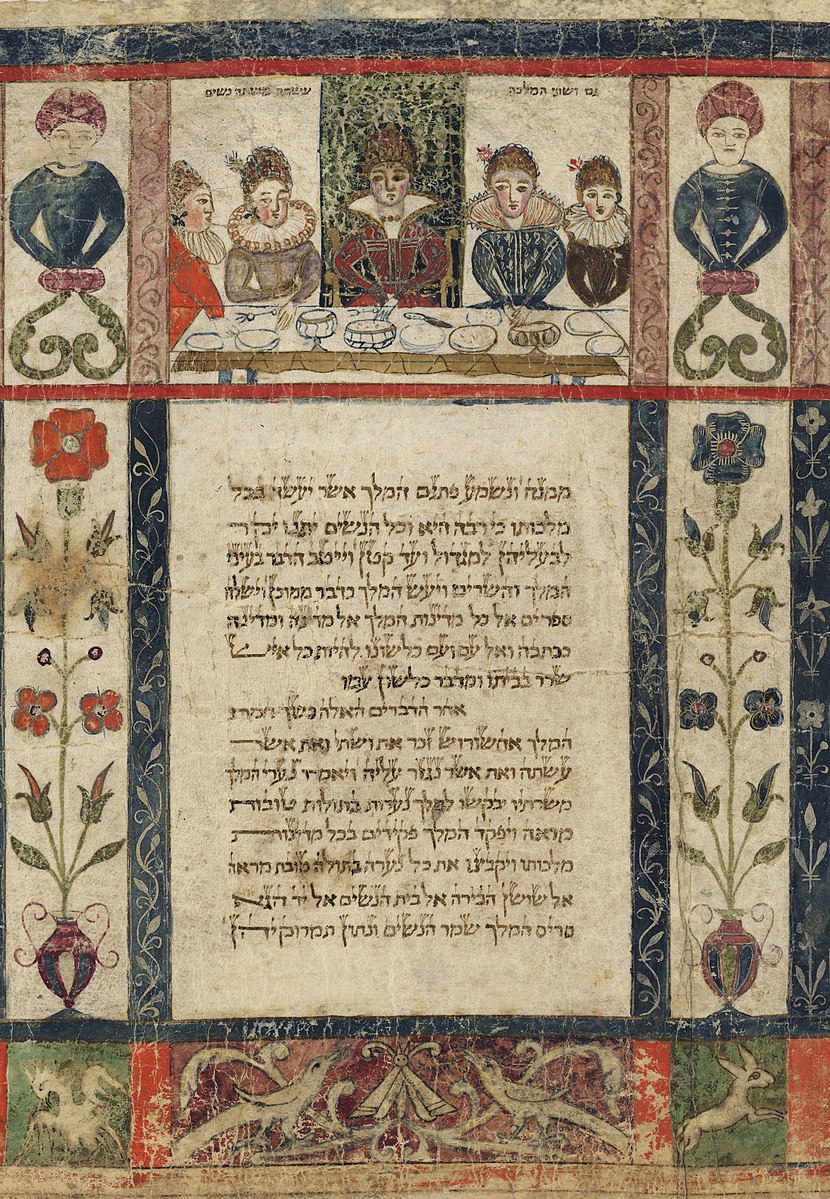 גם ושתי המלכה
עשתה משתה נשים
ממנה ונשמע פתגם המלך אשר יעשה בכל
מלכותו כי רבה היא וכל הנשים יתנו יקר
לבעליהן למגדול ועד קטן וייטב הדבר בעיני
המלך והשרים ויעש המלך כדבר ממוכן וישלח
ספרים אל כל מדינות המלך אל מדינה ומדינה
ככתבה ואל עם ועם כלשונו להיות כל איש
שרר בביתו ומדבר כלשון עמו
אחר הדברים האלה כשך חמת
המלך אחשורוש זכר את ושתי ואת אשר
עשתה ואת אשר נגזר עליה ויאמרו נערי המלך
משרתיו יבקשו למלך נערות בתולות טובות
מראה ויפקד המלך פקידים בכל מדינות
מלכותו ויקבצו את כל נערה בתולה טובת מראה
אל שושן הבירה אל בית הנשים אל יד הגא
סריס המלך שמר הנשים ונתון תמרוקיהן